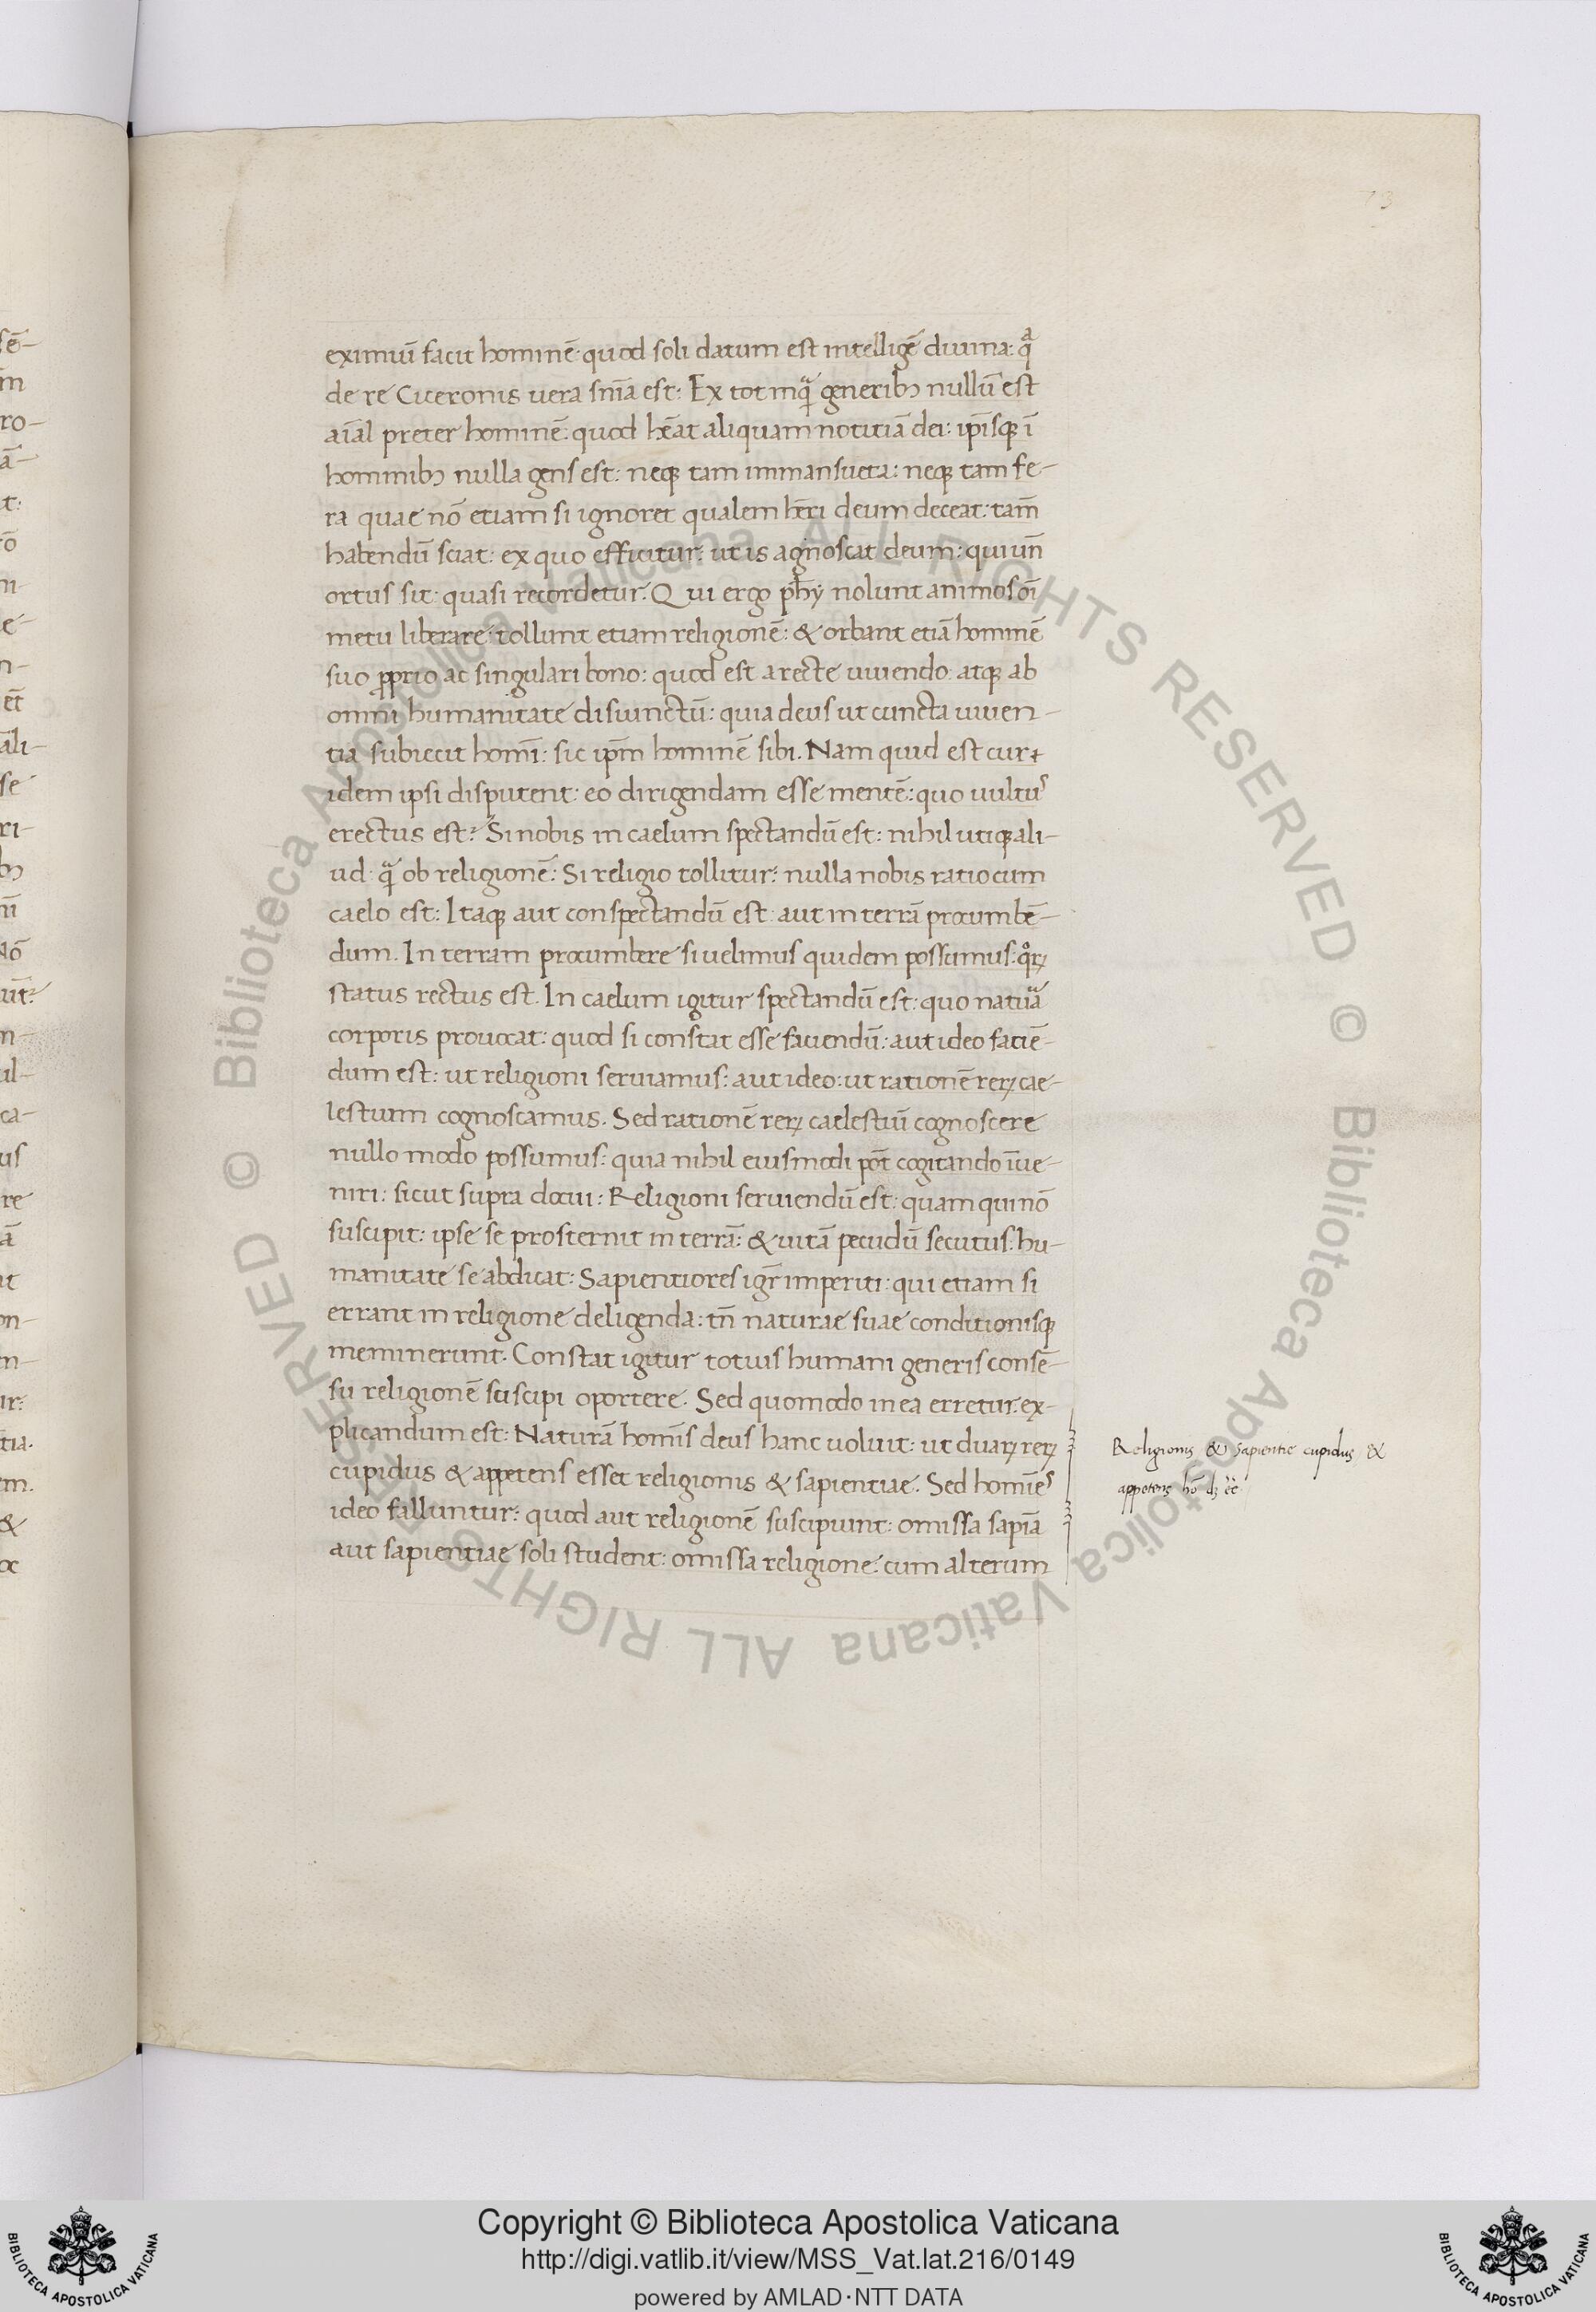 73
eximiū facit hominē: quod soli datum est intelligē diuina: qͣ
de re Ciceronis uera sn̄ia est: Ex tot inqͣ generibꝫ nullū est
aīal preter hominē: quod hēat aliquam notitiā dei: ip̄isqꝫ ī
hominibꝫ nulla gens est: neqꝫ tam immansueta: neqꝫ tam fe-
ra quae nō etiam si ignoret qualem hēri deum deceat: tam̄
habendū sciat: ex quo efficitur: ut is agnoscat deum: qui un̄
ortus sit: quasi recordetur. Qui ergo phy nolunt animos oī
metu liberare tollunt etiam religionē: & orbant etiā hominē
suo ꝓprio ac singulari bono: quod est a recte uiuendo atqꝫ ab
omni humanitate disiunctū: quia deus ut cuncta uiuen-
tia subiecit homī: sic ip̄m hominē sibi. Nam quid est cur
idem ipsi disputent: eo dirigendam esse mentē: quo uultus
erectus est? Si nobis in caelum spectandū est: nihil utiqꝫ ali-
ud qͣ ob religionē: Si religio tollitur: nulla nobis ratio cum
caelo est: Itaqꝫ aut conspectandū est: aut in terrā procumbē-
dum. In terram procumbere si uelimus quidem possumus: qͦꝝ
status rectus est. In caelum igitur spectandū est: quo natuͣ
corporis prouocat: quod si constat esse faciendū: aut ideo faciē-
dum est: ut religioni seruiamus: aut ideo: ut rationē reꝝ cae-
lestium cognoscamus. Sed rationē reꝝ caelestiū cognoscere
nullo modo possumus: quia nihil eiusmodi pōt cogitando īue-
niri: sicut supra docui: Religioni seruiendū est: quam qui nō
suscipit: ipse se prosternit in terrā: & uitā pecudū secutus: hu-
manitate se abdicat: Sapientiores igr̄ imperiti: qui etiam si
errant in religione deligenda: tn̄ naturae suae conditionisqꝫ
meminerunt. Constat igitur totius humani generis consē-
su religionē suscipi oportere. Sed quomodo in ea erretur: ex-
plicandum est: Naturā homīs deus hanc uoluit: ut duaꝝ reꝝ
cupidus & appetens esset religionis & sapientiae. Sed homīes
ideo falluntur: quod aut religionē suscipiunt: omissa sapīa
aut sapientiae soli student: omissa religione: cum alterum
Religionis & Sapientie cupidus &
appetens hō dꝫ eē
Copyright © Biblioteca Apostolica Vaticana
http://digi.vatlib.it/view/MSS_Vat.lat.216/0149
powered by AMLAD·NTT DATA
BIBLIOTECA APOSTOLICA VATICANA
BIBLIOTECA APOSTOLICA VATICANA
© Biblioteca Apostolica Vaticana ALL RIGHTS RESERVED
© Biblioteca Apostolica Vaticana ALL RIGHTS RESERVED